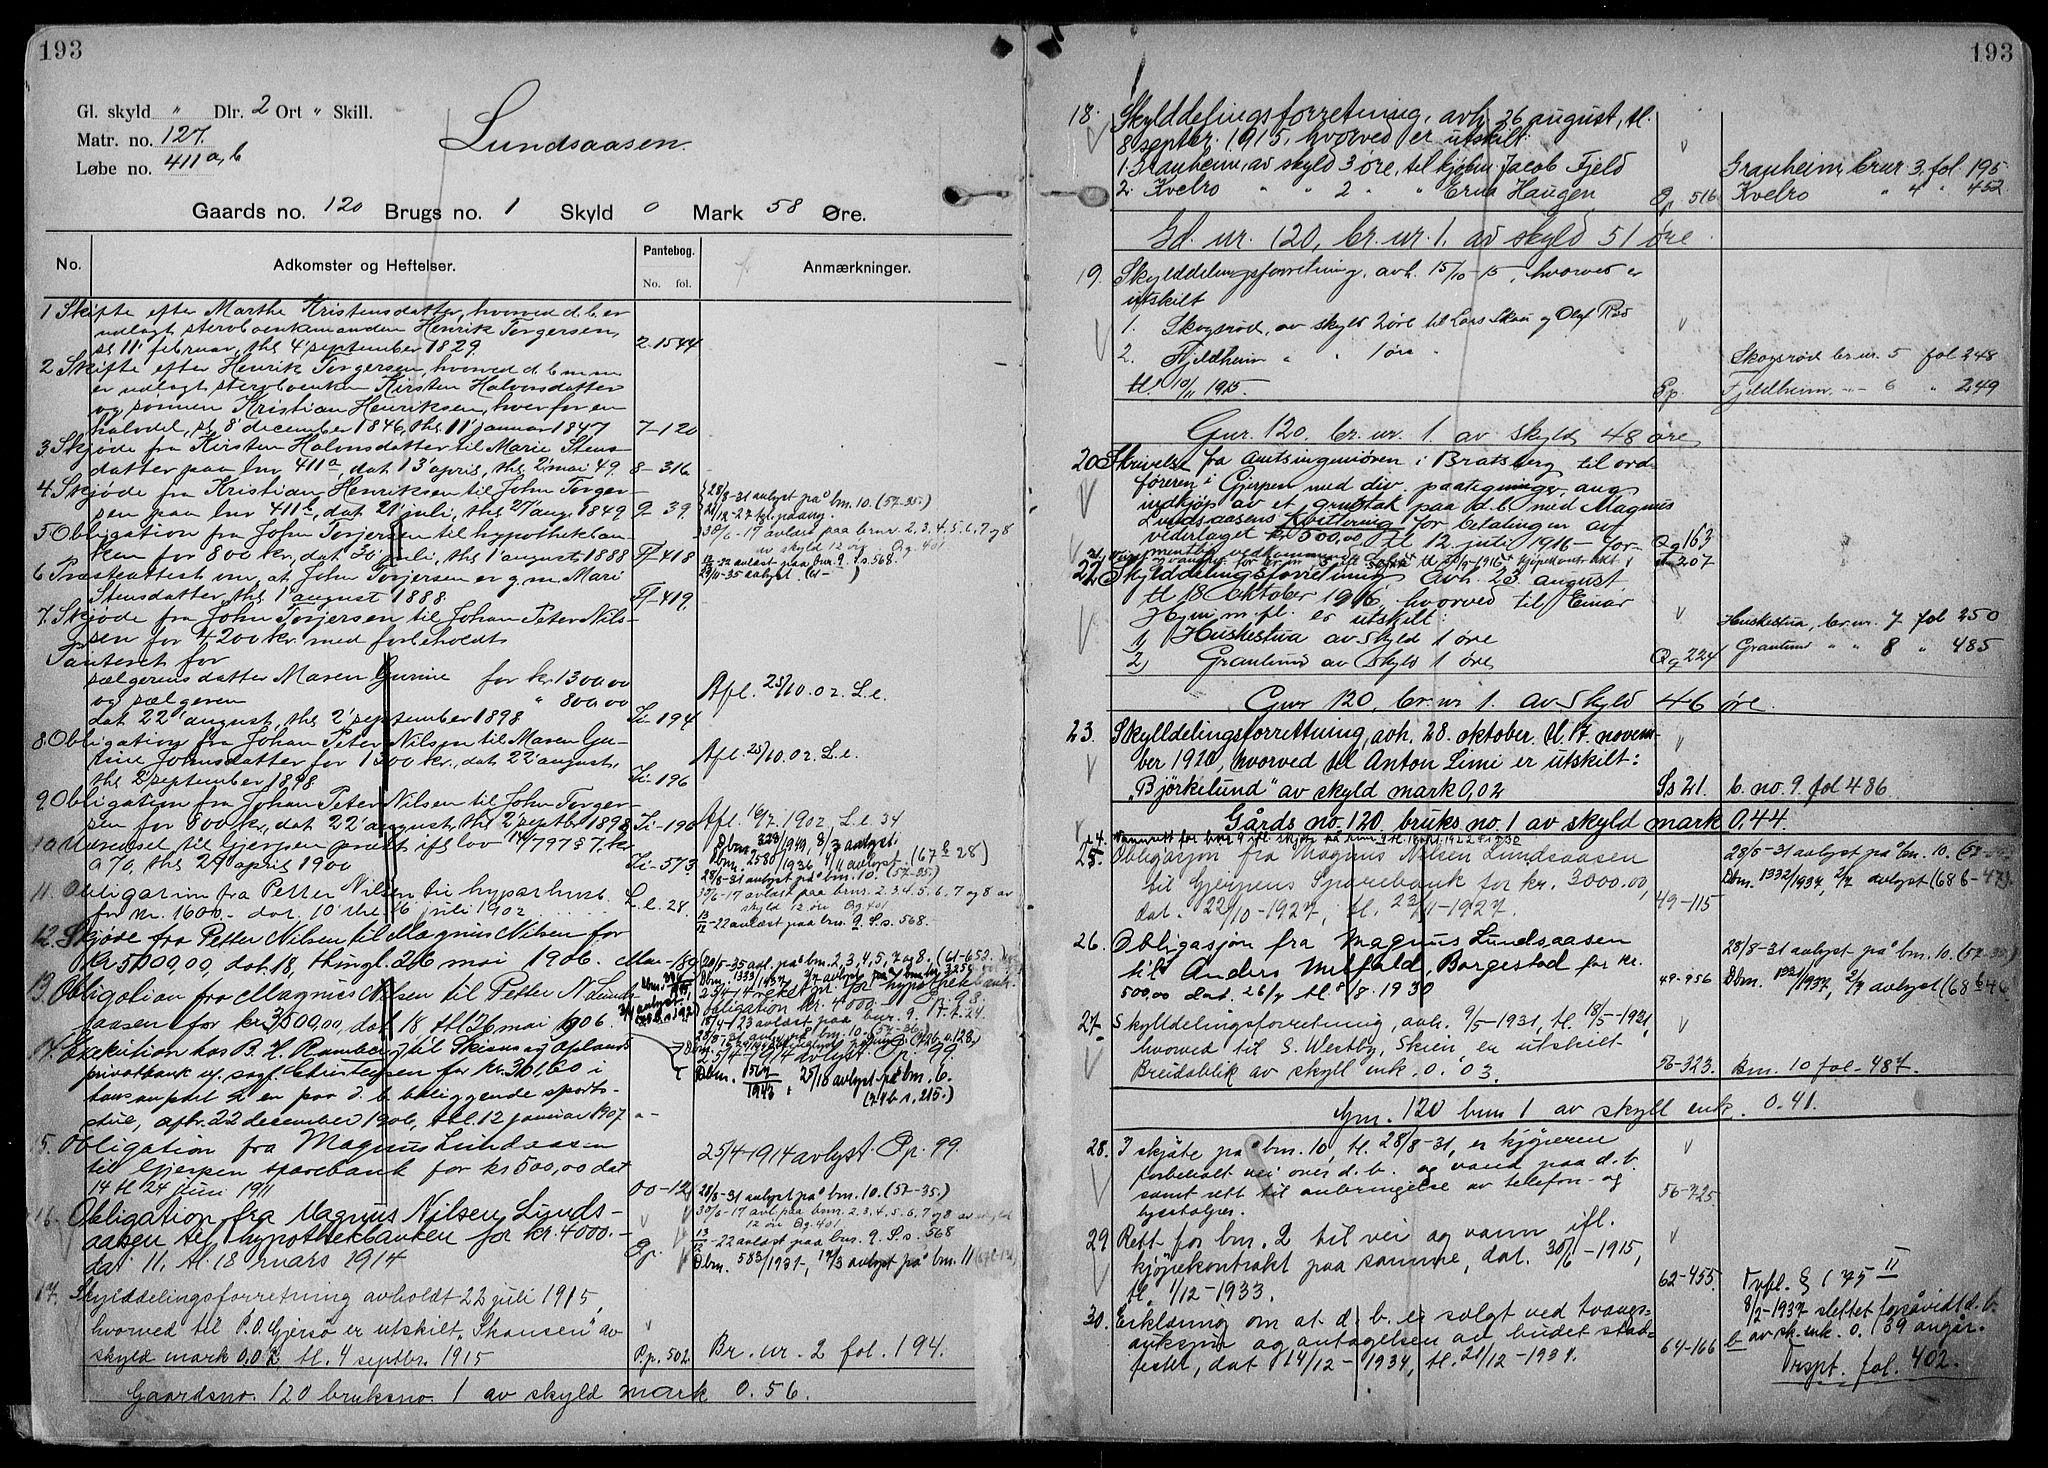 193
Gl. skyld " Dlr. 2 Ort " Skill.
Matr. no. 127.
Løbe no. 411 a,b
Lundsaasen
Gaards no. 120 Brugs no. 1 Skyld 0 Mark 58 Øre.
No. Adkomster og Heftelser. Pantebog. No. fol. Anmærkninger.
1 Skifte efter Marthe Kristensdatter, hvorved d. b. er
udlagt stervboenkemanden Henrik Torgersen,
sl. 11' februar, thl. 4' september 1829. 2-1544
2 Skifte efter Henrik Torgersen, hvorved d. b. m.m
er udlagt stervboenken Kirsten Halvorsdatter
og sønnen Kristian Henriksen, hver for en
halvdel, sl. 8' december 1846, thl. 11' januar 1847 7-120
3. Skjøde fra Kirsten Halvorsdatter til Marie Stens-
datter paa lnr 411a, dat. 13' april, thl. 2' mai 49. 8-316
4. Skjøde fra Kristian Henriksen til John Torger-
sen paa lnr 411b, dat. 21' juli, thl. 27' aug. 1849 9-39.
5 Obligation fra John Torjersen til hypothekban-
ken for 800 kr., dat. 30' juli, thl. 1' august 1888 Ff-418
28/8-31 avlyst på bnr. 10. (57-35.)
30/6-17 avløst paa brnr. 2, 3, 4, 5, 6, 7 og 8
av skyld 12 øre Qg. 401
13/12-22 avløst paa bnr. 9. S.s. 568.
6 Præsteattest om, at John Torjersen er g. m. Mari
Stensdatter, thl. 1' august 1888. Ff-419.
7. Skjøde fra John Torjersen til Johan Peter Nils-
sen for 4200 kr. med forbeholdt
Panteret for
sælgerens datter Maren Gurine for kr. 1300.00
og sælgeren " 800.00
dat. 22' august, thl. 2' september 1898 Ii-194
Afl. 25/10.02. L.l.
8 Obligation fra Johan Peter Nilsen til Maren Gu-
rine Johnsdatter for 1300 kr., dat 22' august,
thl. 2' september 1898 Ii-196
Afl. 25/10.02. L.l.
9. Obligation fra Johan Peter Nilsen til John Torger-
sen for 800 kr., dat. 22' august, thl. 2' septbr. 1898 Ii-196
Afl. 16/7. 1902. L.l. 34
10 Udskrift til Gjerpen
a %, thl. 27 april 1900 Ii-573
11. Obligation fra Petter Nilsen til hypothekb.
for kr. 1600.- dat. 10' thl. 16 juli 1902 L.l. 28.
28/8-31 avlyst på bnr. 10. (57-35.)
30/6-17 avløst paa bnr. 2, 3, 4, 5, 6, 7 og 8 av
skyld 12 øre Qg. 401
13/12-22 avløst paa bnr. 9. S.s. 568.
12. Skjøde fra Petter Nilsen til Magnus Nilsen for
kr 5000,00, dat. 18, thingl. 26 mai 1906.
13. Obligation fra Magnus Nilsen til Petter N. Lunds-
aasen for kr. 3500,00, dat. 18 thl. 26 mai 1906.
14. Exekution hos B. H. Ramberg til Skiens og Oplands
privatbank v. sagf. Christensen for kr. 301,60 i
hus en paa d. b. beliggende sports-
stue, afh. 22 december 1906, thl. 12 januar 1907
25/4-1914 avlyst P.p. 99.
25/10 avlyst på bnr. 6.
15. Obligation fra Magnus Lundsaasen
til Gjerpen sparebank for kr 500,00 dat
14 tl. 24 juni 1911 Oo-12
25/4-1914 avlyst. Pp. 99.
16. Obligation fra Magnus Nilsen Lunds-
aasen til hypothekbanken for kr. 4000.-
dat. 11. tl. 18 mars 1914 Pp.
28/8-31 avlyst på bnr. 10. (57-35.)
30/6-17 avl. paa bnr. 2, 3, 4, 5, 6, 7 og 8 av skyld
12 øre Qg. 401
13/12-22 avløst paa bnr. 9. S.s. 568
17. Skylddelingsforretning avholdt 22 juli 1915,
hvorved til P.O. Gjersø er utskilt "Skansen" av
skyld mark 0,02 tl. 4 septbr. 1915 P.p. 502 Br. nr. 2 fol. 194.
Gaardsno. 120 bruksno. 1 av skyld mark 0.56.
193
18. Skylddelingsforretning, avh. 26 august, tl.
8 septbr. 1915, hvorved er utskilt
1. Granheim, av skyld 3 øre, til kjøbm. Jacob Fjeld Granheim, br nr 3. fol. 195
2. Kvelro " " 2 " " Erna Haugen P.p. 516. Kvelro " 4 " 452
Gd. nr. 120, br. nr. 1. av skyld 51 øre.
19. Skylddelingsforretning, avh. 15/10-15, hvorved er
utskilt
1. Skogsrød, av skyld 2 øre til Lars Skau og Olaf Rød
2. Fjeldheim " " 1 øre " Skogsrød br. nr. 5 fol 248
tl. 10/11 1915. P.p. Fjeldheim. -"- 6 " 249
Gnr. 120. br. nr. 1. av skyld 48 øre
20. Skrivelse fra amtsingeniøren i Bratsberg til ord-
føreren i Gjerpen med div. paategninger, ang.
indkjøp av et grustak paa d.b. med Magnus
Lundsaasens Kvittering for betalingen av
vederlaget kr 500.00 tl 12. juli 1916 Qq 163
207
22. Skylddelingsforretning avh. 23. august
tl 18 oktober 1916, hvorved til Einar
m. fl. er utskilt:
1) Huskestua av skyld 1 øre Huskestua, br. nr. 7 fol 250
2) Granlund av skyld 1 øre Qq 224 Granlund " " 8 " 485
Gnr 120, br. nr 1. av skyld 46 øre.
23. Skylddelingsforrettning, avh. 28. oktober. tl. 17. novem-
ber 1920, hvorved til Anton Limi er utskilt:
"Bjørkelund" av skyld mark 0,02 Ss 21. b. no. 9. fol 486.
Gårds no. 120. bruks no. 1 av skyld mark 0.44.
25. Obligasjon fra Magnus Nilsen Lundsaasen
til Gjerpens Sparebank for kr. 3000.00,
dat. 22/10-1927, tl. 23/11-1927. 49-115
28/8-31 avlyst på bnr. 10. (57-35.)
Dbnr. 1332/1937, 2/7 avlyst (68 b-47).
26. Obligasjon fra Magnus Lundsaasen
til Anders Melfald, Borgestad for kr.
500,00 dat. 26/7 tl. 8/8. 1930 49-956
28/8-31 avlyst på bnr. 10. (57-35.)
Dbnr. 1331/1937, 2/7 avlyst (68 b-46)
27. Skylddelingsforretning, avh. 9/5-1931, tl. 18/5-1931,
hvorved til S. Westby, Skien, er utskilt
Breidablik av skyll enk. 0.03. 56-323. Bnr. 10 fol-487.
Gnr. 120 bnr 1 av skyll enk. 0.41.
28. I skjøte på bnr. 10, tl. 28/8-31, er kjøperen
forbeholt vei over d. b. og vand paa d. b.
samt rett til anbringelse av telefon- og
lysstolper. 56-725
29 Rett for bnr. 2 til vei og vann ifl.
kjøpekontrakt paa samme, dat. 30/6-1915,
tl. 1/12-1933. 62-455.
30. Erklæring om at d. b. er solgt ved tvangs-
auksjon og antagelsen av budet stad-
festet, dat 14/12-1934, tl. 21/12-1934. 64-166
Tvfl. § 175 II
8/2-1937 slettet forsåvidt d. b.
av sk. enk. 0.139 angår.
Trspt. fol. 402.